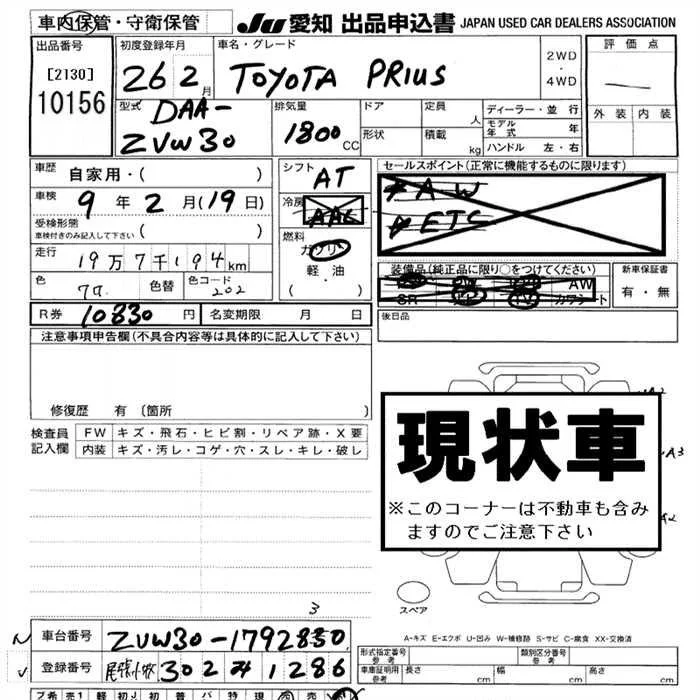 車内保管・守衛保管 JU 愛知 出品申込書 JAPAN USED CAR DEALERS ASSOCIATION
出品番号 初度登録年月 車名・グレード 評価点
[2130] 26 2月 TOYOTA PRIUS 2WD・4WD
10156 型式 排気量 ドア 定員 人 ディーラー・並行 外装 内装
DAA- モデル年式 年
ZVW30 1800 CC 形状 積載 kg ハンドル 左・右
車歴 自家用・( ) シフト AT セールスポイント(正常に機能するものに限ります)
車検 9年 2月(19日) 冷房 AAC AW
受検形態 ETC
車検付きのみ記入して下さい ( ) 燃料
走行 19万7千194km ガソリン 装備品(純正品に限り○をつけてください) 新車保証書
色 色替 色コード 202 軽・油 AW
( ・ ) SR カワシート 有・無
R券 10830円 名変期限 月 日 後日品
注意事項申告欄(不具合内容等は具体的に記入して下さい)
修復歴 有 〔箇所 〕
検査員記入欄 FW キズ・飛石・ヒビ割・リペア跡・X要
内装 キズ・汚レ・コゲ・穴・スレ・キレ・破レ
現状車
※このコーナーは不動車も含み
ますのでご注意下さい
A2
A3
A2
スペア
3
A-キズ E-エクボ U-凹み W-補修跡 S-サビ C-腐食 XX-交換済
車台番号 ZVW30-1792850
登録番号 尾張小牧 302 1286
形式指定番号 参考 類別区分番号 参考
車庫証明用 参考 長さ cm 幅 cm 高さ cm